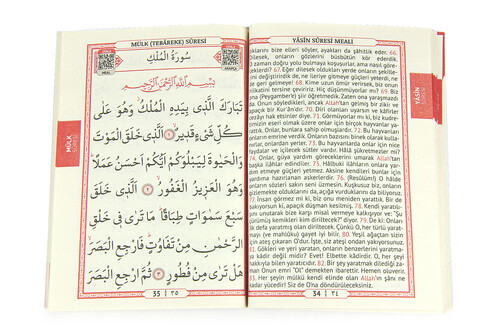 MÜLK (TEBÂREKE) SÛRESİ
سُورَةُ الْمُلْكِ
بِسْمِ اللّٰهِ الرَّحْمٰنِ الرَّحِيمِ
تَبَارَكَ الَّذِى بِيَدِهِ الْمُلْكُ وَهُوَ عَلٰى
كُلِّ شَىْءٍ قَدِيرٌ ١ اَلَّذِى خَلَقَ الْمَوْتَ
وَالْحَيٰوةَ لِيَبْلُوَكُمْ اَيُّكُمْ اَحْسَنُ عَمَلًا
وَهُوَ الْعَزِيزُ الْغَفُورُ ٢ اَلَّذِى خَلَقَ
سَبْعَ سَمٰوَاتٍ طِبَاقًا مَا تَرٰى فِى خَلْقِ
الرَّحْمٰنِ مِنْ تَفَاوُتٍ فَارْجِعِ الْبَصَرَ
هَلْ تَرٰى مِنْ فُطُورٍ ٣ ثُمَّ ارْجِعِ الْبَصَرَ
35 | ٣٥
MÜLK
SÛRESİ
YÂSÎN SÛRESİ MEALİ
aklarını bize elleri söyler, ayakları da şâhitsik eder. 66.
O zaman doğru yolu bulmaya koşuşurlar, ama nasıl göre-
cekler! 67. Eğer dilesek oldukları yerde onların şekille-
rini değiştirirdik de, ne ileriye gitmeye güçleri yeter, ne
de geri gelmeye! 68. Kime uzun ömür verirsek, biz onun
tersine çeviririz. Hiç düşünmüyorlar mı? 69. Biz
ona (Peygamber'e) şiir öğretmedik. Zaten ona yaraşmazdı
da. Onun söyledikleri, ancak Allah'tan gelmiş bir zikir ve
apaçık bir Kur'ân'dır. 70. Diri olanları uyarsın ve kâfirler
azâbı hak etsinler diye. 71. Görmüyorlar mı ki, biz kudre-
timizin eseri olmak üzere onlar için birçok hayvanlar ya-
rattık. Onlar, bunlara sahip olmuşlardır. 72. Bu hayvanları
onların emrine verdik. Onlardan bir kısmı binekleridir,
onlardan yerler. 73. Bu hayvanlarda onlar için nice
faydalar ve içilesi sütler vardır. Hâlâ şükretmezler mi?
74. Onlar, güya yardım göreceklerini umarak Allah'tan
başka ilâhlar edindiler. 75. Hâlbuki ilâhların onlara yar-
dım etmeye güçleri yetmez. Aksine kendileri bunlar için
yardıma hazırlanan askerlerdir. 76. (Resûlüm!) O hâlde
onların sözleri sakın seni üzmesin. Kuşkusuz biz, onların
gizlemekte olduklarını da, açığa vurduklarını da biliyoruz.
77. İnsan görmez mi ki, biz onu meniden yarattık. Bir de
bakıyorsun ki, apaçık düşman kesilmiş. 78. Kendi yaratılı-
şını unutarak bize karşı misal vermeye kalkışıyor ve: "Şu
çürümüş kemikleri kim diriltecek?" diyor. 79. De ki: Onları
ilk defa yaratmış olan diriltecek. Çünkü O, her türlü yarat-
mayı (ve mahlûku) gayet iyi bilir. 80. Yeşil ağaçtan sizin
için ateş çıkaran O'dur. İşte, siz ateşi ondan yakıyorsunuz.
81. Gökleri ve yeri yaratan, onların benzerlerini yaratma-
ya kâdir değil midir? Evet! Elbette kâdirdir. O, her şeyi
hakkıyla bilen yaratıcıdır. 82. Bir şey yaratmak dilediği za-
man Onun emri "Ol" demekten ibarettir. Hemen oluverir.
83. Her şeyin mülkü kendi elinde olan Allah'ın şânı ne
kadar yücedir! Siz de O'na döndürüleceksiniz.
34 | ٣٤
YÂSÎN
SÛRESİ